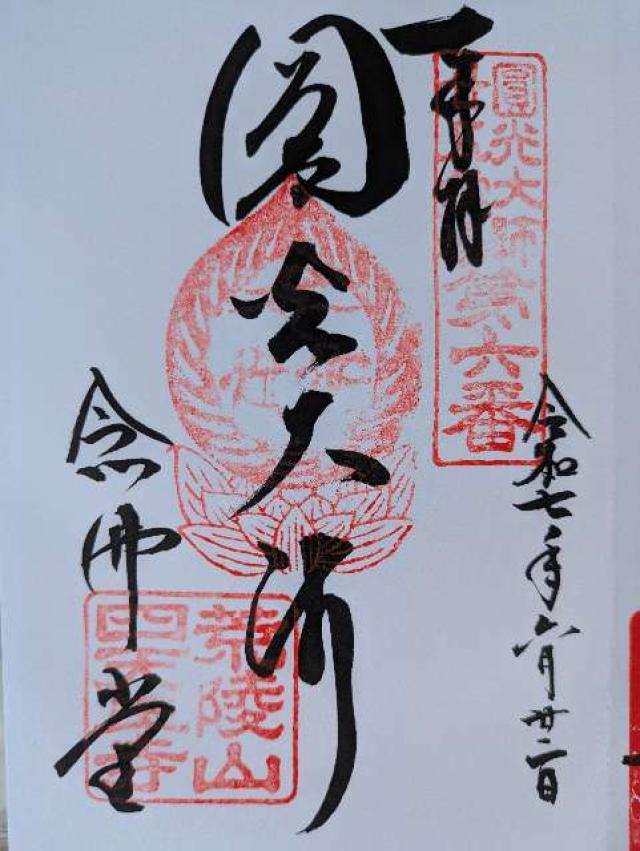 奉拝
圓光大師第六番
令和七年六月廿二日
圓光大師
荒陵山
四天王寺
念佛堂